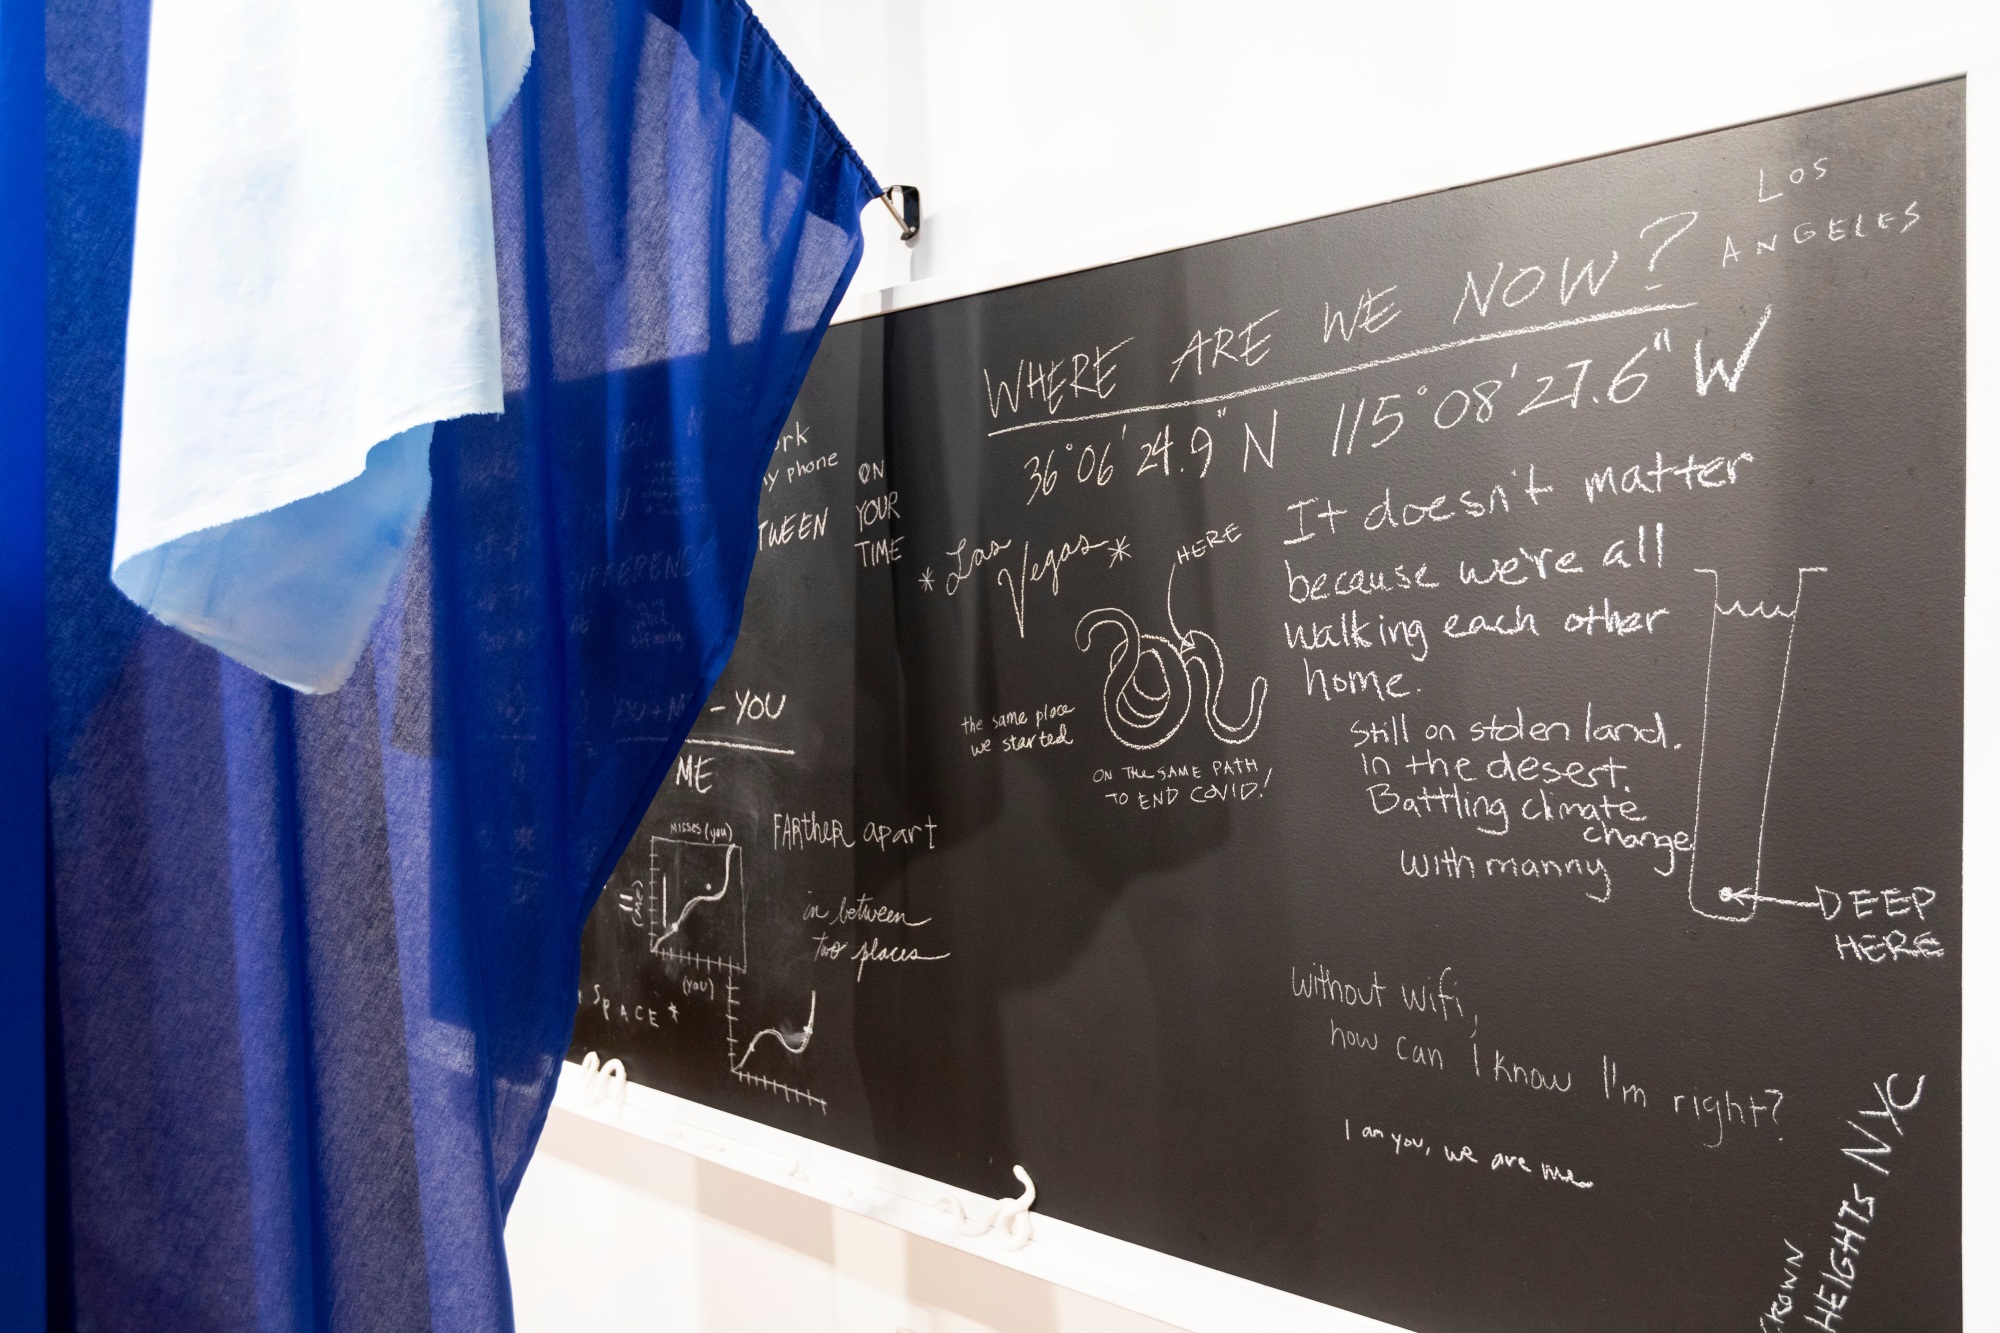 WHERE ARE WE NOW?
LOS
ANGELES
36°06'24.9"N 115°08'27.6"W
It doesn't matter
because we're all
walking each other
home.
Still on stolen land.
In the desert.
Battling climate
change
with manny
DEEP
HERE
* Las
Vegas *
HERE
the same place
we started
ON THE SAME PATH
TO END COVID!
without wifi,
how can I know I'm right?
I am you, we are me
HEIGHTS NYC
phone
ON
YOUR
TIME
- YOU
ME
FARTHER apart
in between
two places
MISSES (you)
= (ME)
(YOU)
SPACE *